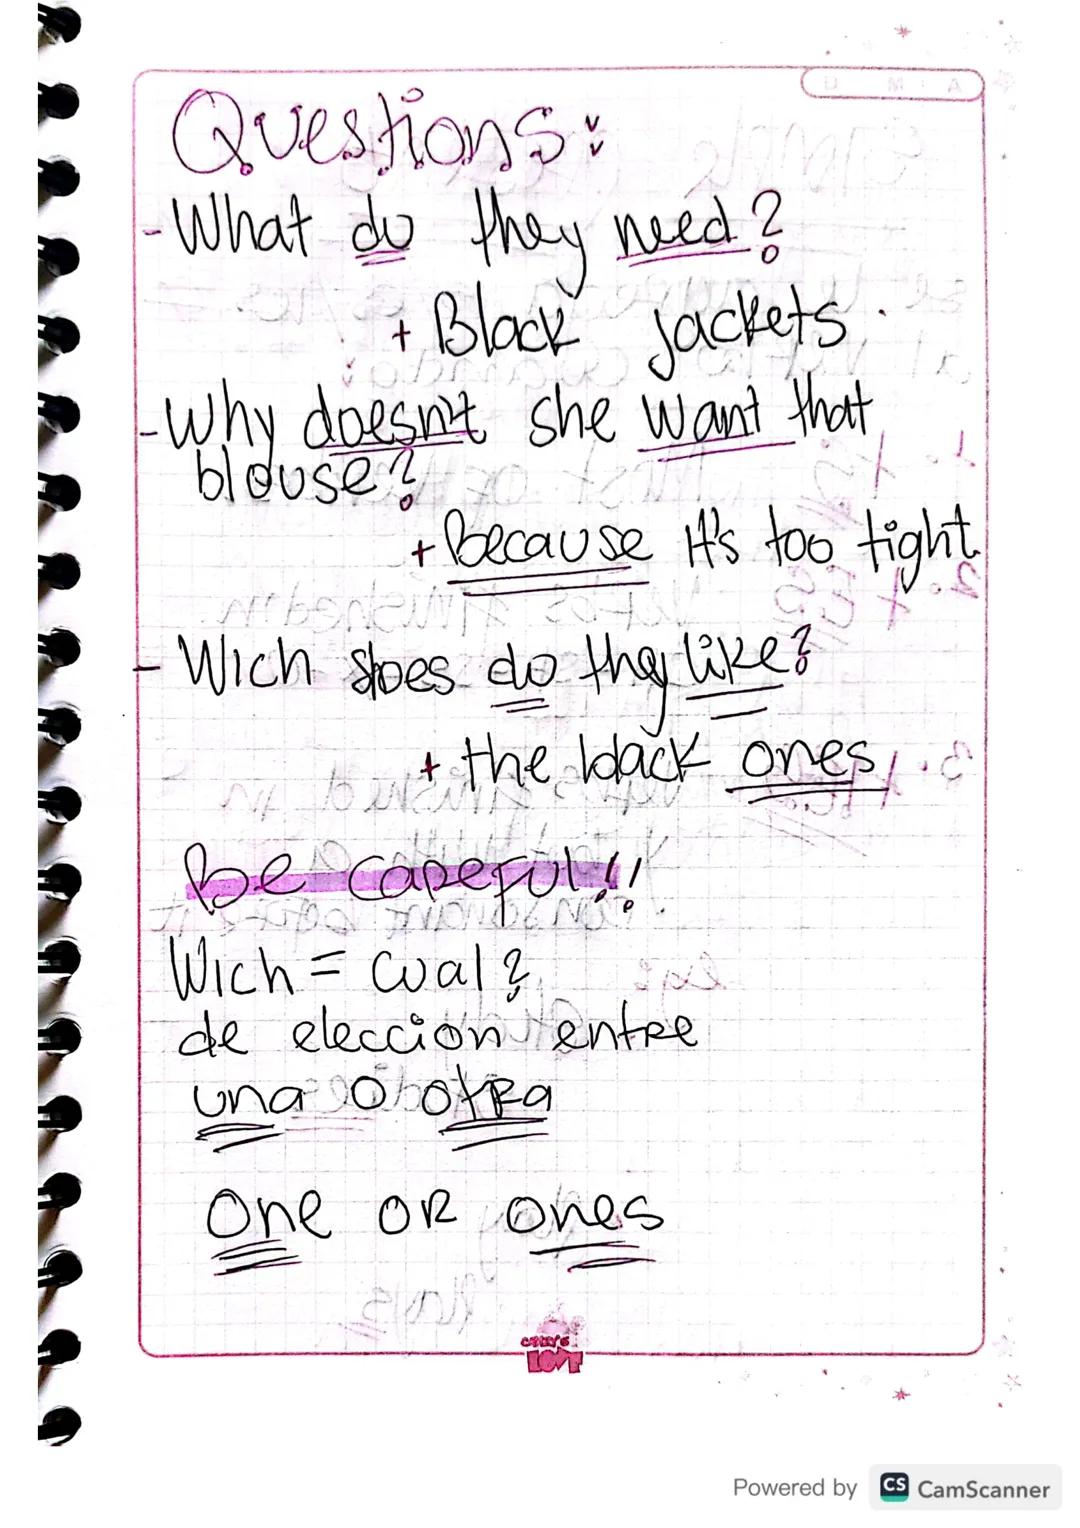 D M A
Questions:
- What do they need?
+ Black jackets.
- Why doesn't she want that
blouse?
+ Because it's too tight.
- Wich shoes do they like?
+ the black ones
Be careful!!
Wich = cual?
de eleccion entre
una o otra
One or ones
LOVE
Powered by CS CamScanner